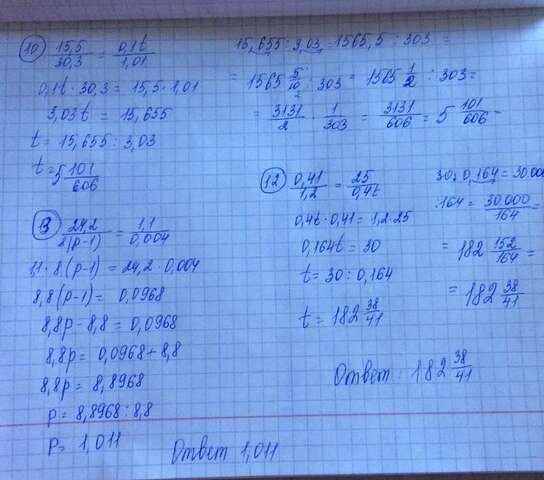 10) 15,5/30,3 = 0,1t/1,01
0,1t · 30,3 = 15,5 · 1,01
3,03t = 15,655
t = 15,655 : 3,03
t = 5 101/606
15,655 : 3,03 = 1565,5 : 303 =
= 1565 5/10 : 303 = 1565 1/2 : 303 =
= 3131/2 · 1/303 = 3131/606 = 5 101/606
24,2/8(p-1) = 1,1/0,004
1,1 · 8(p-1) = 24,2 · 0,004
8,8(p-1) = 0,0968
8,8p - 8,8 = 0,0968
8,8p = 0,0968 + 8,8
8,8p = 8,8968
p = 8,8968 : 8,8
p = 1,011
Ответ 1,011
12) 0,41/1,2 = 25/0,4t
0,4t · 0,41 = 1,2 · 25
0,164t = 30
t = 30 : 0,164
t = 182 38/41
30 : 0,164 = 30000
:164 = 30.000/164 =
= 182 152/164 =
= 182 38/41
Ответ : 182 38/41